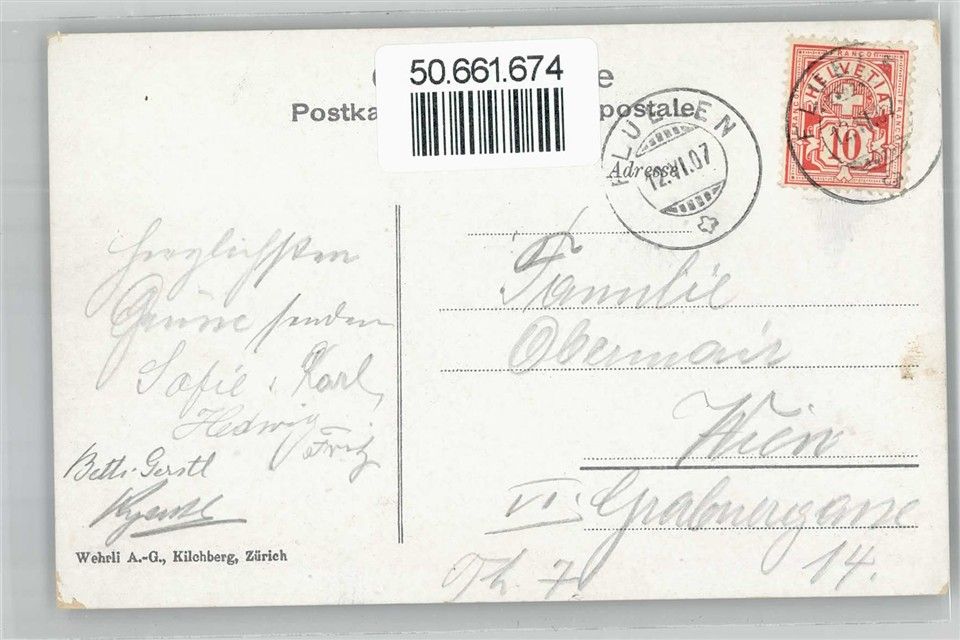 50.661.674
Postka
postale
Adresse
FLUELEN
12.VI.07
FRANCO
HELVETIA
FRANCO
10
Herzlichsten
Grüsse senden
Sofie, Karl,
Hedwig
Fritz
Betti Gerstl
Wehrli A.-G., Kilchberg, Zürich
Familie
Obermair
Wien
VI. Grabnergasse
14.
Th. 7